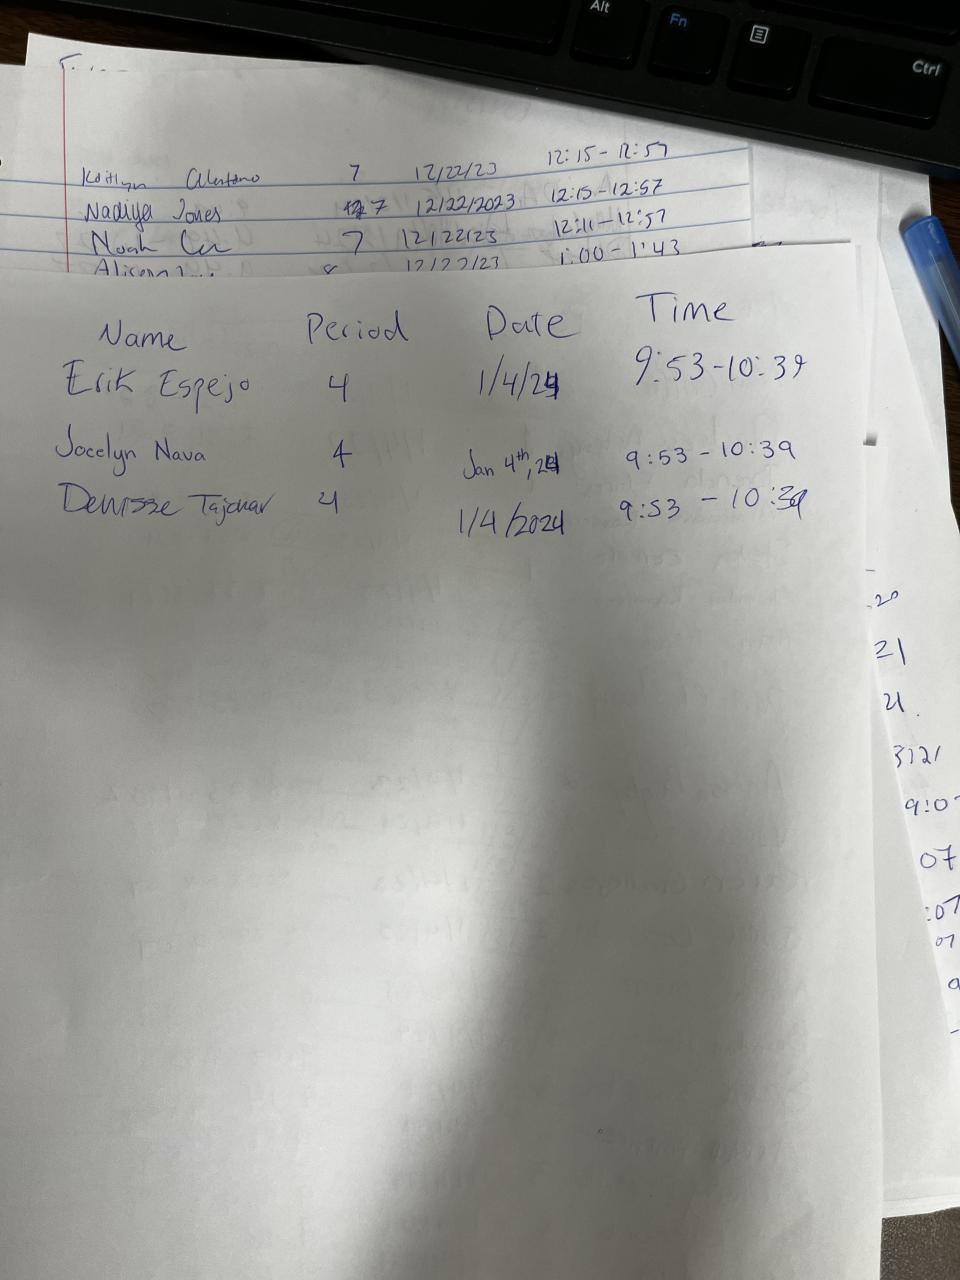 Alt
Fn
Ctrl
Kaitlyn 7 12/22/23 12:15 - 12:57
Nadiya Jones 7 12/22/2023 12:15 - 12:57
Noah 7 12/22/23 12:11 - 12:57
8 12/22/23 1:00 - 1:43
Name Period Date Time
Erik Espejo 4 1/4/24 9:53 - 10:39
Jocelyn Nava 4 Jan 4th, 24 9:53 - 10:39
Denisse 4 1/4/2024 9:53 - 10:39
20
21
21
3:21
9:07
07
:07
07